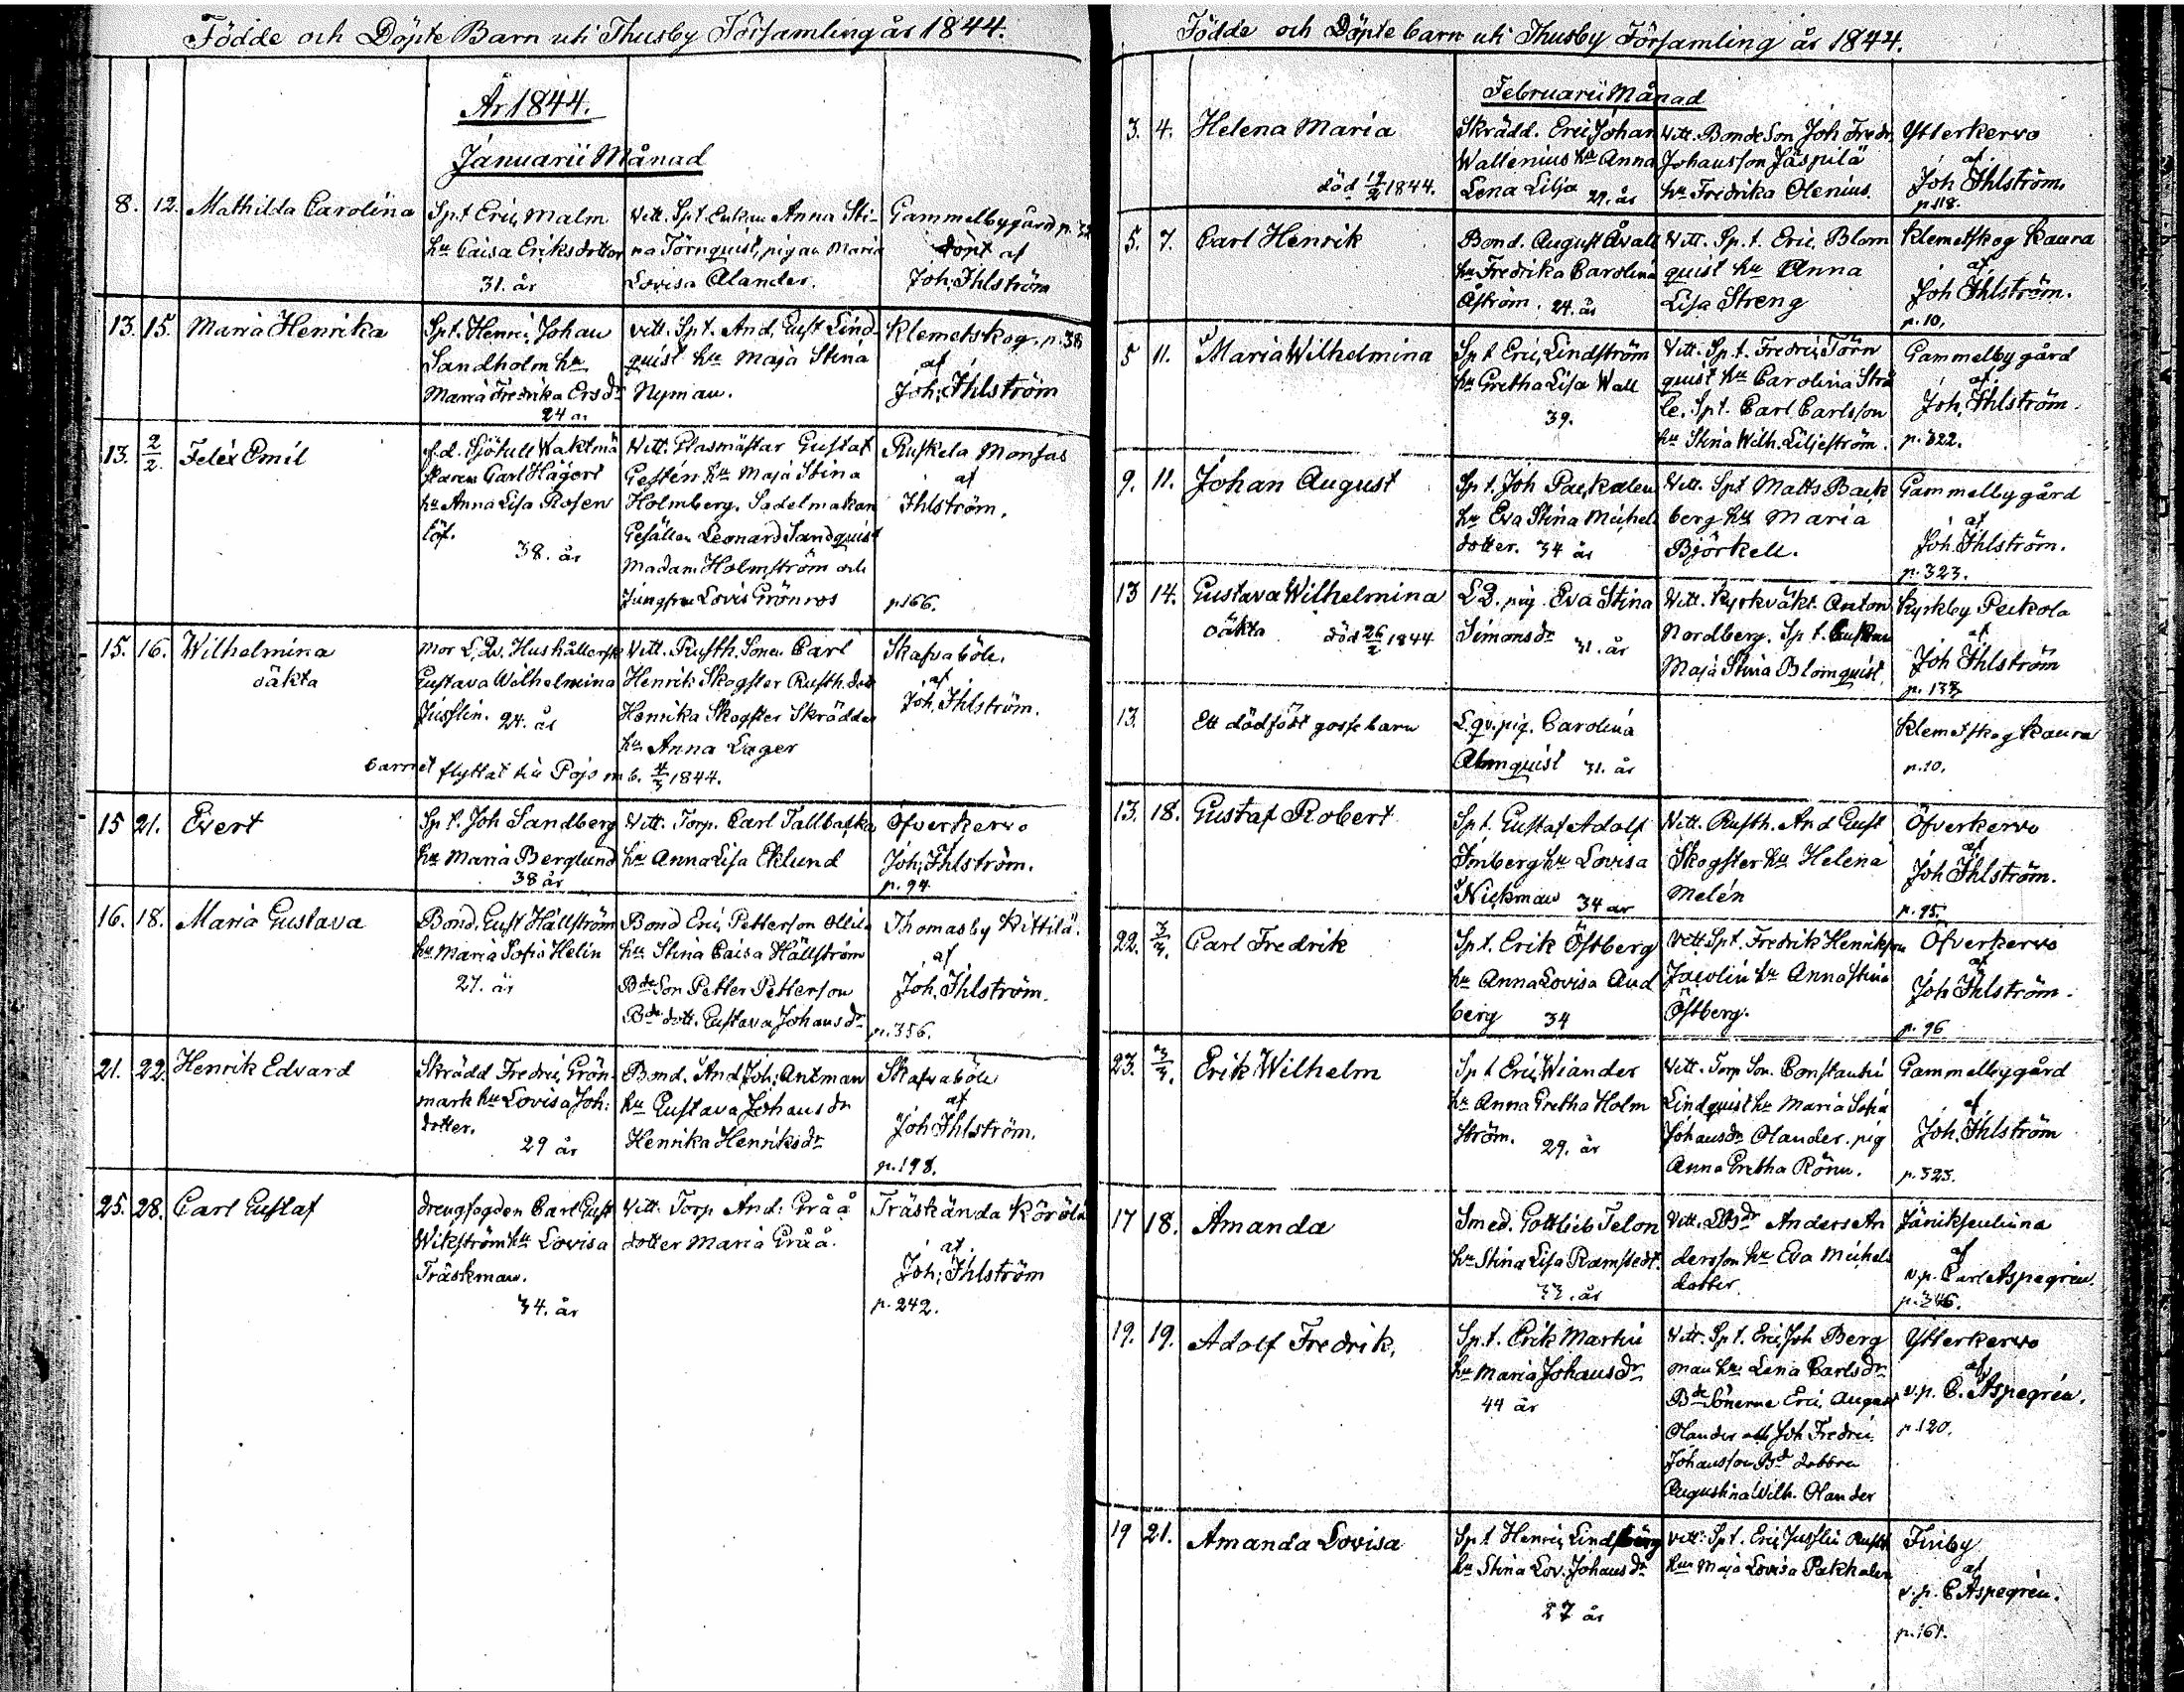 Födde och Döpte Barn uti Thusby Församling år 1844.
År 1844.
Januarii Månad
8. 12. Mathilda Carolina
Spt Eric Malm
hu Caisa Eriksdotter
31. år
Vitt. Spt. Enkan Anna Sti-
na Törnquist, pigan Maria
Lovisa Alander.
Gammelbygård p. 32
döpt af
Joh. Ihlström
13. 15. Maria Henrika
Spt. Henric Johan
Sandholm hu
Maria Fredrika Ersdr
24 år
Vitt. Spt. And. Gust Lind-
quist hu Maja Stina
Nyman.
Klemetskog. p. 38
af
Joh. Ihlström
13. 2/2. Felix Emil
f.d. Sjötull Waktmä
staren Carl Hägert
hu Anna Lisa Rosen
löf.
38. år
Vitt. Glasmästar Gustaf
Gestén hu Maja Stina
Holmberg. Sadelmakar
Gesällen Leonard Sandquist
Madam Holmström och
Jungfru Lovis Grönros
Ruskela Monsas
af
Ihlström.
p166.
15. 16. Wilhelmina
oäkta
Mor L. Qv. Hushållersk
Gustava Wilhelmina
Jusslin. 24. år
Vitt. Rusth. Sonen Carl
Henrik Skogster Rusth. dott
Henrika Skogster Skrädder
hu Anna Lager
Skafvaböle.
af
Joh. Ihlström.
barnet flyttat till Pojo m b. 4/3 1844.
15 21. Evert
Spt. Joh Sandberg
hu Maria Berglund
38 år
Vitt. Torp. Carl Tallbacka
hu Anna Lisa Eklund
Öfverkervo
af
Joh. Ihlström.
p. 94
16. 18. Maria Gustava
Bond. Gust Hällström
hu Maria Sofia Helin
27. år
Bond Eric Petterson Ollila
hu Stina Caisa Hällström
Bde Son Petter Petterson
Bde dott. Gustava Johansdr
Thomasby Kittilä.
af
Joh. Ihlström.
p. 356.
21. 22. Henrik Edvard
Skrädd Fredric Grön-
mark hu Lovisa Joh:
dotter.
29 år
Bond. And Joh: Antman
hu Gustava Johansdr
Henrika Henriksdr
Skafvaböle
af
Joh Ihlström.
p. 198.
25. 28. Carl Gustaf
drengfogden Carl Gust
Wikström hu Lovisa
Träskman.
34. år
Vitt. Torp And: Gråå
dotter Maria Gråå.
Träskända Körölä
af.
Joh: Ihlström
p. 242.
Födde och Döpte barn uti Thusby Församling år 1844.
Februarii Månad
3. 4. Helena Maria
död 19/2 1844.
Skrädd. Eric Johan
Wallenius hu Anna
Lena Lilja 29. år
Vitt. Bonde Son Joh Fredr.
Johansson Jäspilä
hu Fredrika Olenius.
Ytterkervo
af
Joh Ihlström.
p 118.
5. 7. Carl Henrik
Bond. August Åvall
hu Fredrika Carolina
Åström. 24. år
Vitt. Spt. Eric Blom
quist hu Anna
Lisa Streng
Klemetskog Kaura
af
Joh Ihlström.
p. 10.
5 11. Maria Wilhelmina
Spt Eric Lindström
hu Gretha Lisa Wall
39.
Vitt. Spt. Fredric Törn
quist hu Carolina Strå
le. Spt. Carl Carlsson
hu Stina Wilh. Liljeström.
Gammelby gård
af
Joh, Ihlström.
p. 322.
9. 11. Johan August
Spt. Joh Packalen
hu Eva Stina Michels
dotter. 34 år
Vitt. Spt Matts Back
berg hu Maria
Björkell.
Gammelby gård
af
Joh. Ihlström.
p. 323.
13 14. Gustava Wilhelmina
oäkta död 26/2 1844
L. Q. pig. Eva Stina
Simonsdr 31. år
Vitt. Kyrkväkt. Anton
Nordberg. Spt. Enkan
Maja Stina Blomquist.
Kyrkby Peckola
af
Joh Ihlström
13.
Ett dödfödt gossebarn
L. qv. pig. Carolina
Almquist 31. år
Klemetskog Kaura
p. 10.
13. 18. Gustaf Robert
Spt. Gustaf Adolf
Imberg hu Lovisa
Nickman 34 år
Vitt. Rusth. And Gust
Skogster hu Helena
Melén
Öfverkervo
af
Joh Ihlström.
p. 95.
22. 3/3. Carl Fredrik
Spt. Erik Östberg
hu Anna Lovisa And
berg 34
Vitt Spt. Fredrik Henriksson
hu Anna Stina
Östberg.
Öfverkervo
af
Joh Ihlström.
p. 96
23. 3/3. Erik Wilhelm
Spt Eric Wiander
hu Anna Gretha Holm
ström. 29. år
Vitt. Torp Son. Constantin
Lindquist hu Maria Sofia
Johansdr Olander. pig
Anna Gretha Rönn.
Gammelbygård
af
Joh. Ihlström
p. 323.
17 18. Amanda
Smed. Gottlieb Telon
hu Stina Lisa Ramstedt.
33. år
Vitt. Anders An
dersson hu Eva Michels
dotter.
Jäniksenlinna
af
v.p. Carl Aspegrén.
p. 346.
19. 19. Adolf Fredrik.
Spt. Erik Martin
hu Maria Johansdr
44 år
Vitt. Spt. Eric Joh Berg
man hu Lena Carlsdr
Bde Sönerne Eric August
Olander och Joh Fredric
Johansson Bd dottren
Augustina Wilh. Olander
Ytterkervo
af
v.p. C. Aspegrén.
p. 120.
19 21. Amanda Lovisa
Spt Henric Lindberg
hu Stina Lov. Johansdr
27 år
Vitt. Spt. Eric Jusslin Rusth
hu Maja Lovisa Pakkalen
Finby
af
v.p. C Aspegrén.
p. 161.